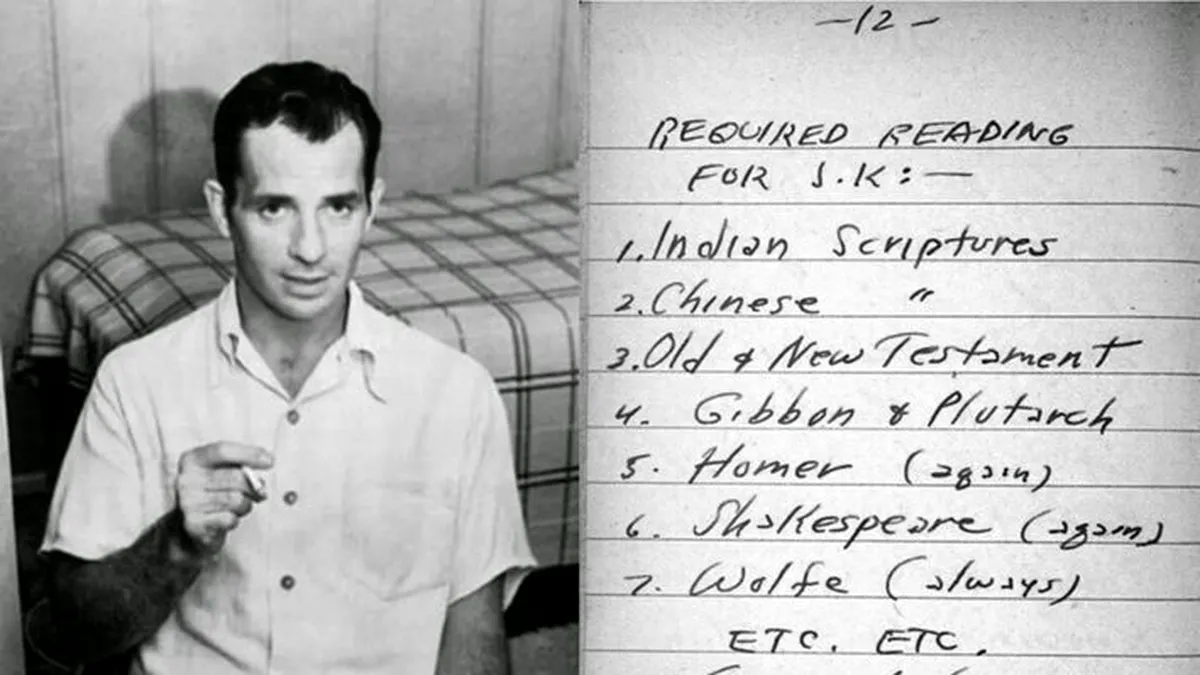 -12-
REQUIRED READING
FOR J.K:—
1. Indian Scriptures
2. Chinese "
3. Old & New Testament
4. Gibbon & Plutarch
5. Homer (again)
6. Shakespeare (again)
7. Wolfe (always)
ETC. ETC.